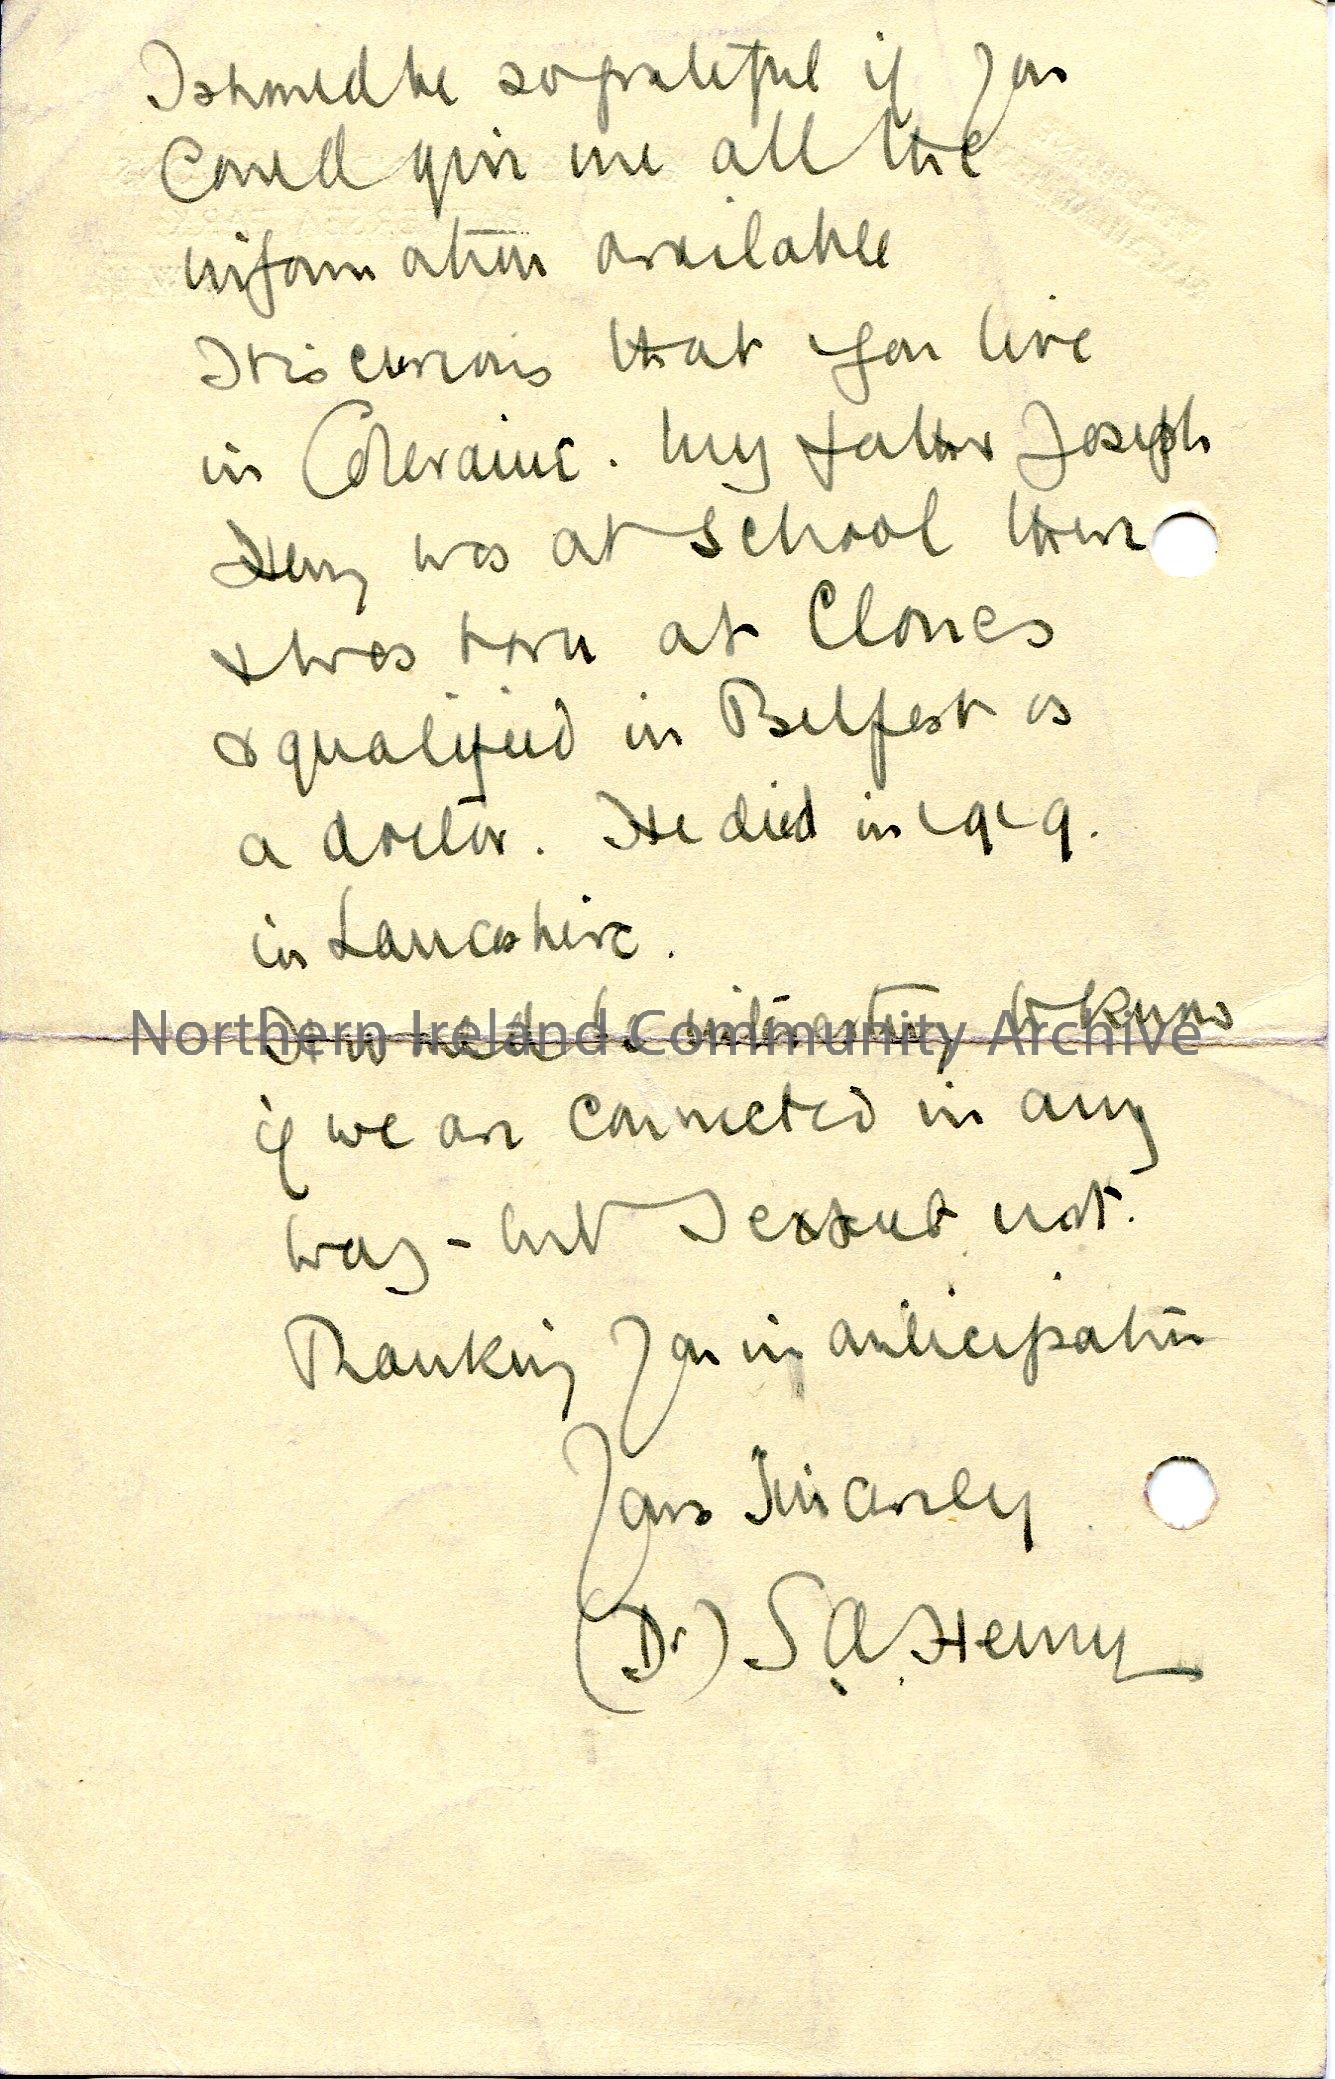 I should be so grateful if you
could give me all the
information available
It is curious that you live
in Coleraine. My father Joseph
Henry was at School there
& was born at Clones
& qualified in Belfast as
a doctor. He died in 1919.
in Lancashire.
It would be interesting to know
Northern Ireland Community Archive
if we are connected in any
way - but I expect not.
Thanking you in anticipation
Yours Sincerely
(Dr) S. A. Henry